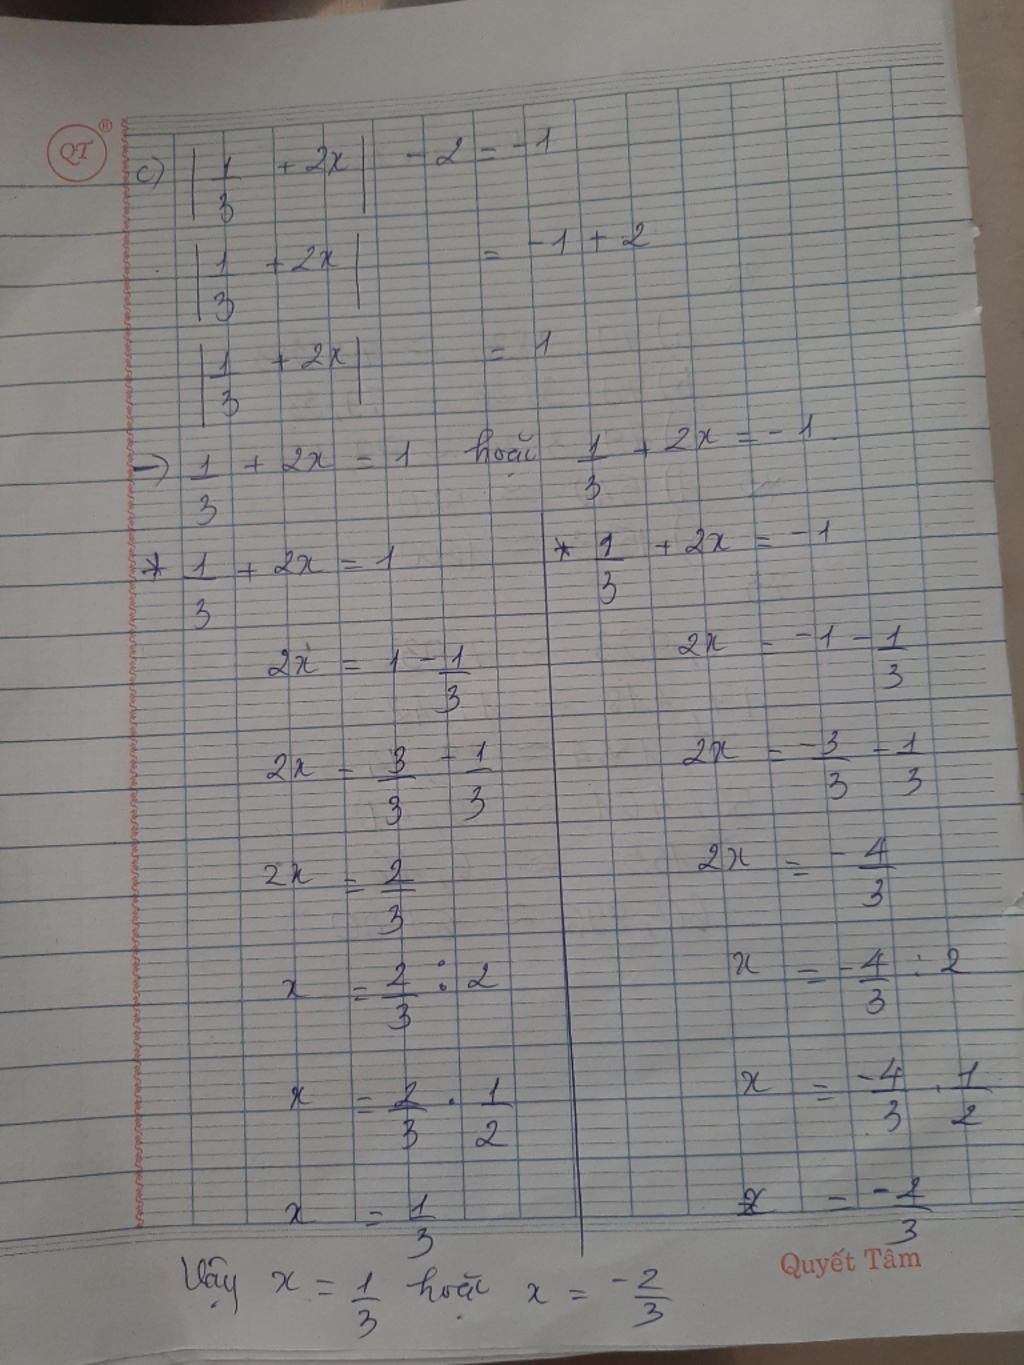 QT ®
c) |1/3 + 2x| - 2 = -1
|1/3 + 2x| = -1 + 2
|1/3 + 2x| = 1
→ 1/3 + 2x = 1 hoặc 1/3 + 2x = -1
* 1/3 + 2x = 1
2x = 1 - 1/3
2x = 3/3 - 1/3
2x = 2/3
x = 2/3 : 2
x = 2/3 . 1/2
x = 1/3
* 1/3 + 2x = -1
2x = -1 - 1/3
2x = -3/3 - 1/3
2x = -4/3
x = -4/3 : 2
x = -4/3 . 1/2
x = -2/3
Quyết Tâm
Vậy x = 1/3 hoặc x = -2/3